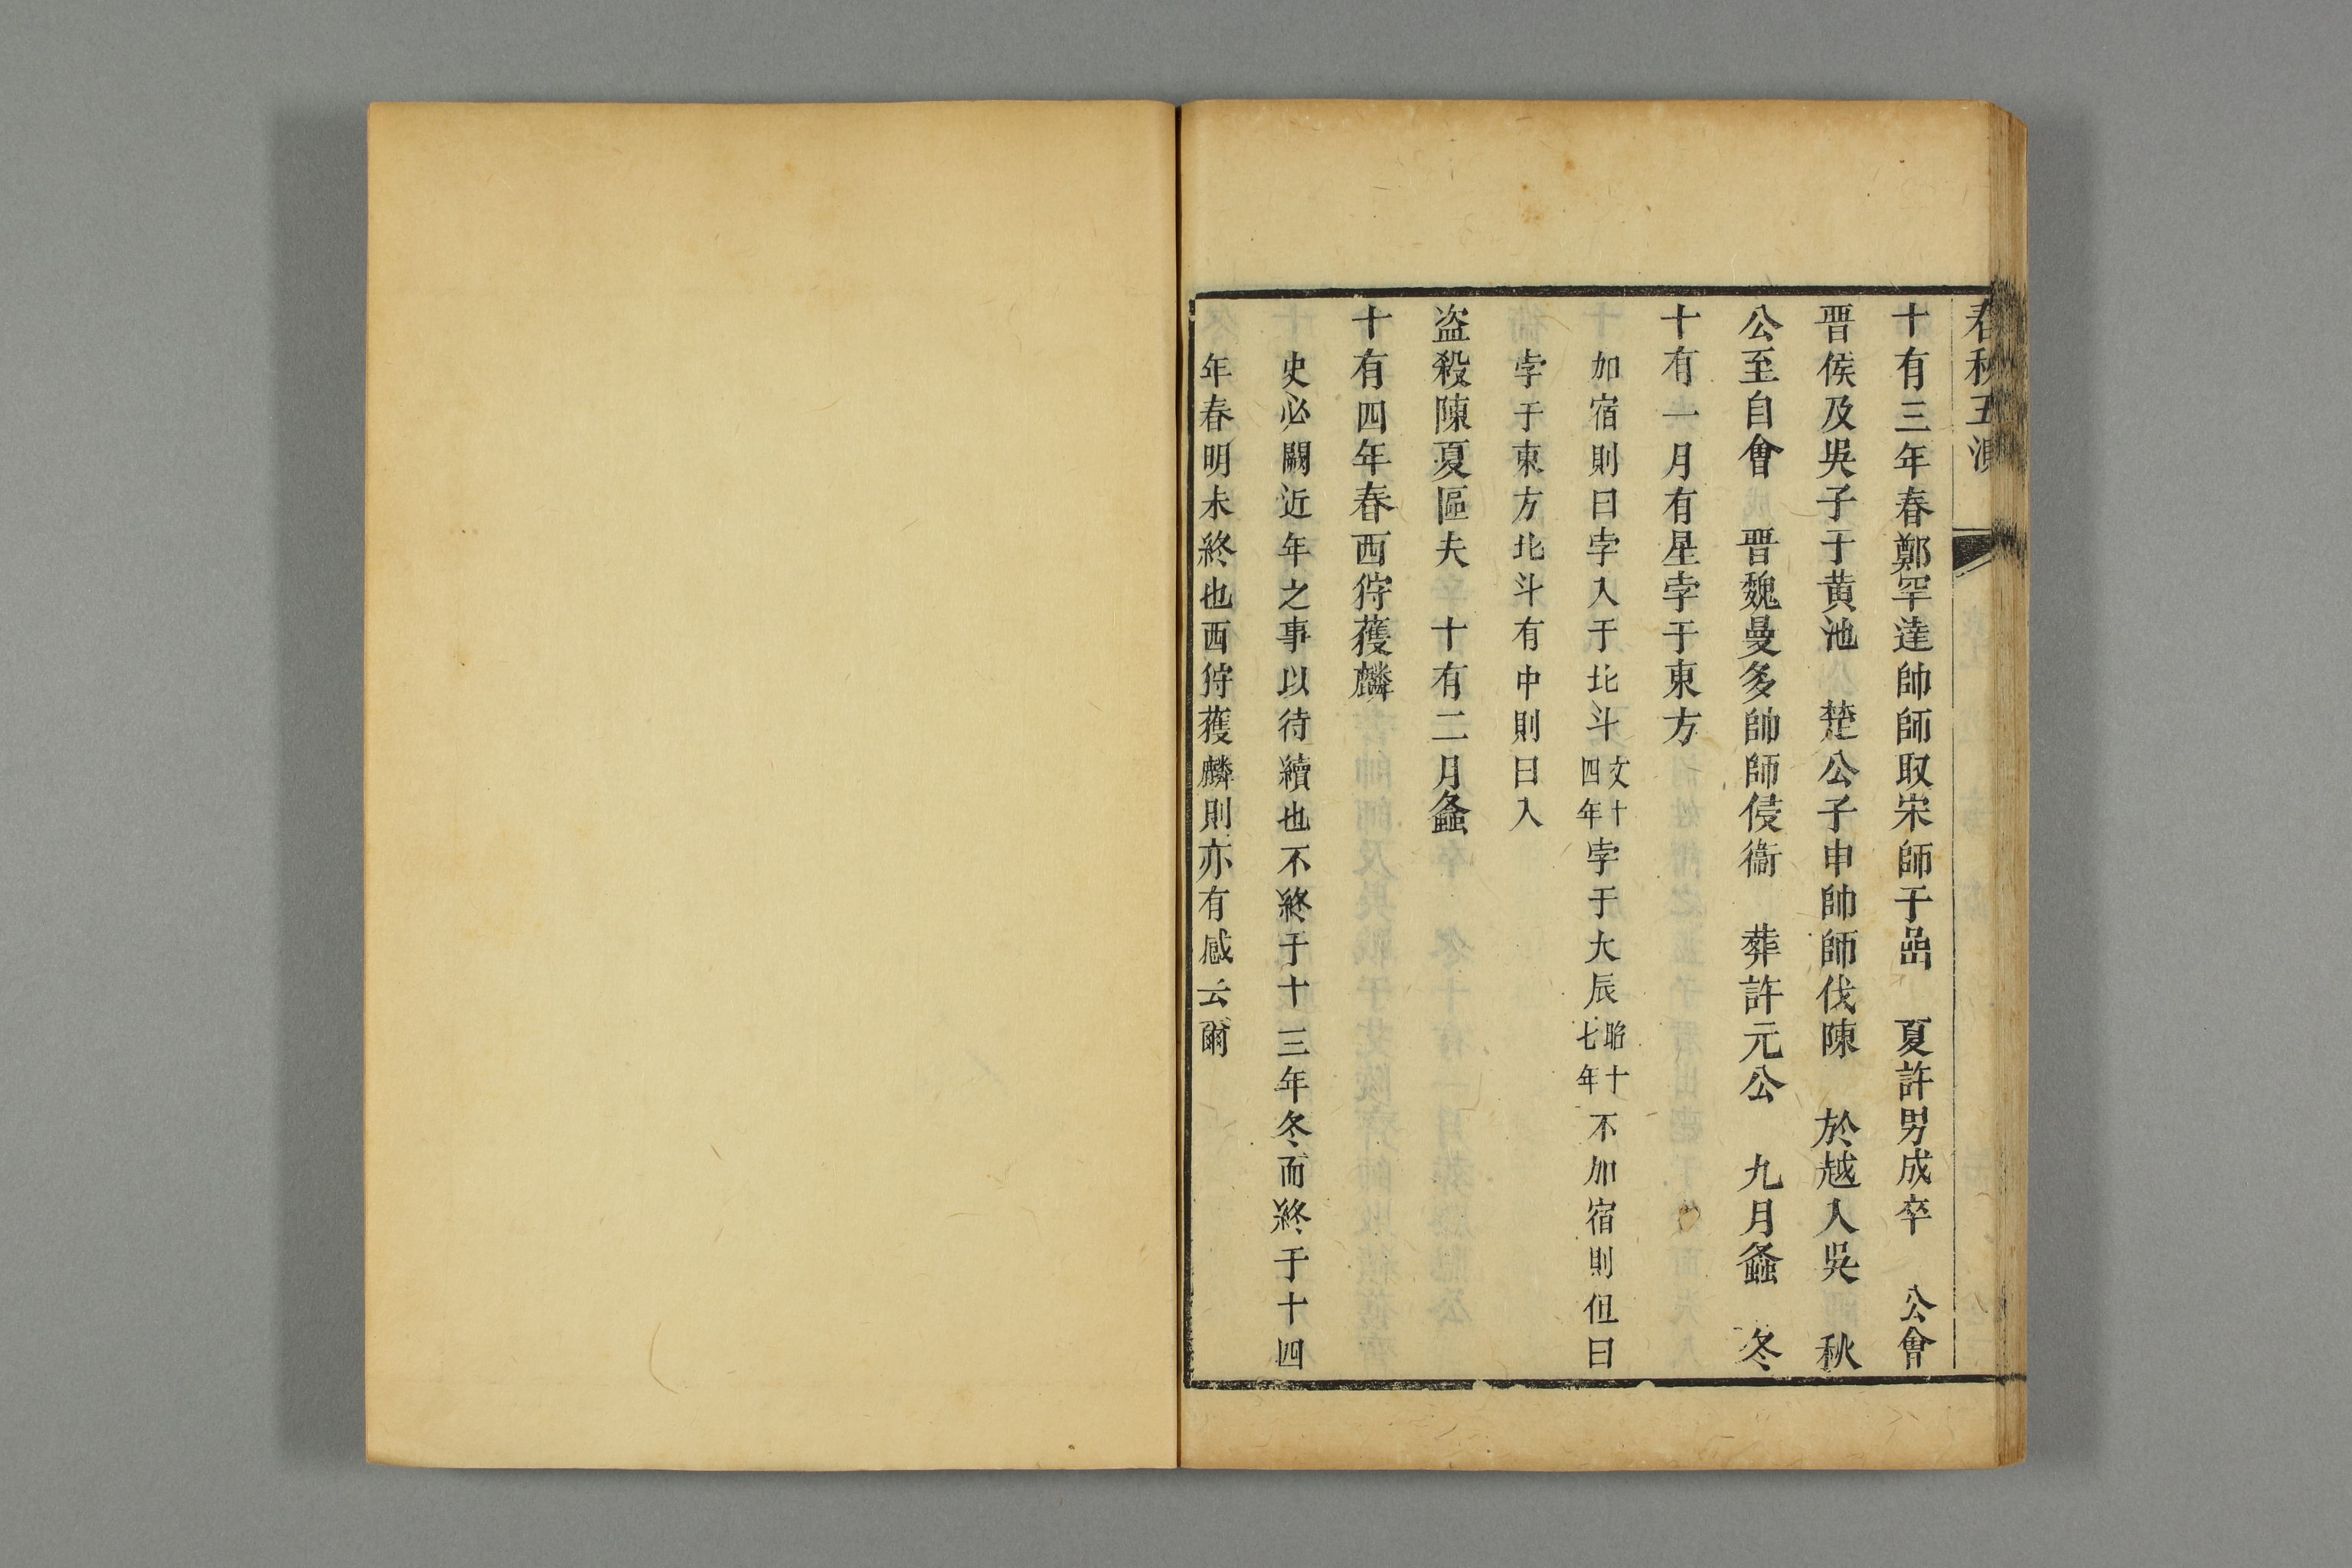 春秋五
十有三年春鄭罕達帥師取宋師于嵒　夏許男成卒　公會
晉侯及吳子于黃池　楚公子申帥師伐陳　於越入吳　秋
公至自會　晉魏曼多帥師侵衞　葬許元公　九月螽　冬
十有一月有星孛于東方
加宿則曰孛入于北斗文十四年孛于大辰昭十七年不加宿則但曰
孛于東方北斗有中則曰入
盗殺陳夏區夫　十有二月螽
十有四年春西狩獲麟
史必闕近年之事以待續也不終于十三年冬而終于十四
年春明未終也西狩獲麟則亦有感云爾